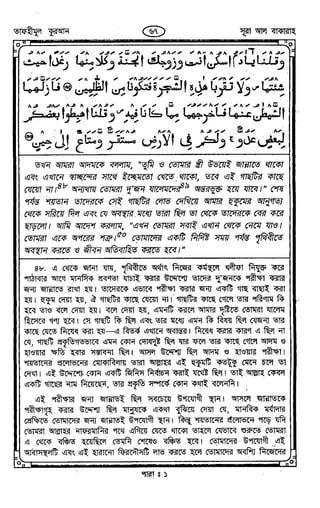 তাফহীমুল কুরআন
৬৭
সূরা আল বাকারাহ
وَقُلْنَا يَا آدَمُ اسْكُنْ أَنْتَ وَزَوْجُكَ الْجَنَّةَ وَكُلَا مِنْهَا رَغَدًا حَيْثُ
شِئْتُمَا وَلَا تَقْرَبَا هَٰذِهِ الشَّجَرَةَ فَتَكُونَا مِنَ الظَّالِمِينَ فَأَزَلَّهُمَا
الشَّيْطَانُ عَنْهَا فَأَخْرَجَهُمَا مِمَّا كَانَا فِيهِ وَقُلْنَا اهْبِطُوا بَعْضُكُمْ
لِبَعْضٍ عَدُوٌّ وَلَكُمْ فِي الْأَرْضِ مُسْتَقَرٌّ وَمَتَاعٌ إِلَىٰ حِينٍ
তখন আমরা আদমকে বললাম, "তুমি ও তোমার স্ত্রী উভয়েই জান্নাতে থাকো
এবং এখানে স্বাচ্ছন্দের সাথে ইচ্ছেমতো খেতে থাকো, তবে এই গাছটির কাছে
যেয়ো না।৪৮ অন্যথায় তোমরা দু'জন যালেমদের৪৯ অন্তরভুক্ত হয়ে যাবে।" শেষ
পর্যন্ত শয়তান তাদেরকে সেই গাছটির লোভ দেখিয়ে আমার হুকুমের আনুগত্য
থেকে সরিয়ে দিল এবং যে অবস্থার মধ্যে তারা ছিল তা থেকে তাদেরকে বের করে
ছাড়লো। আমি আদেশ করলাম, "এখন তোমরা সবাই এখান থেকে নেমে যাও।
তোমরা একে অপরের শত্রু।৫০ তোমাদের একটি নির্দিষ্ট সময় পর্যন্ত পৃথিবীতে
অবস্থান করতে ও জীবন অতিবাহিত করতে হবে।"
৪৮. এ থেকে জানা যায়, পৃথিবীতে অর্থাৎ নিজের কর্মস্থলে খলীফা নিযুক্ত করে
পাঠাবার আগে মানসিক প্রবণতা যাচাই করার উদ্দেশ্যে তাদের দু'জনকে পরীক্ষা করার
জন্য জান্নাতে রাখা হয়। তাদেরকে এভাবে পরীক্ষা করার জন্য একটি গাছ বাছাই করা
হয়। হুকুম দেয়া হয়, ঐ গাছটির কাছে যেয়ো না। গাছটির কাছে গেলে তার পরিণাম কি
হবে তাও বলে দেয়া হয়। বলে দেয়া হয়, এমনটি করলে আমার দৃষ্টিতে তোমরা যালেম
হিসেবে গণ্য হবে। সে গাছটি কি ছিল এবং তার মধ্যে এমন কি বিষয় ছিল যেজন্য তার
কাছে যেতে নিষেধ করা হয়—এ বিতর্ক এখানে অবান্তর। নিষেধ করার কারণ এ ছিল না
যে, গাছটি প্রকৃতিগতভাবে এমন কোন দোষদুষ্ট ছিল যার ফলে তার কাছে গেলে আদম ও
হাওয়ার ক্ষতি হবার সম্ভাবনা ছিল। আসল উদ্দেশ্য ছিল আদম ও হাওয়ার পরীক্ষা।
শয়তানের প্রলোভনের মোকাবিলায় তারা আল্লাহর এই হুকুমটি কতটুকু মেনে চলে তা
দেখা। এই উদ্দেশ্যে কোন একটি জিনিস নির্বাচন করাই যথেষ্ট ছিল। তাই আল্লাহ কেবল
একটি গাছের নাম নিয়েছেন, তার প্রকৃতি সম্পর্কে কোন কথাই বলেননি।
এই পরীক্ষার জন্য জান্নাতই ছিল সবচেয়ে উপযোগী স্থান। আসলে জান্নাতকে
পরীক্ষাগৃহ করার উদ্দেশ্য ছিল মানুষকে একথা বুঝিয়ে দেয়া যে, মানবিক মর্যাদার
প্রেক্ষিতে তোমাদের জন্য জান্নাতই উপযোগী স্থান। কিন্তু শয়তানের প্রলোভনে পড়ে যদি
তোমরা আল্লাহর নাফরমানির পথে এগিয়ে যেতে থাকো তাহলে যেভাবে শুরুতে তোমরা
এ থেকে বঞ্চিত হয়েছিলে তেমনি শেষেও বঞ্চিত হবে। তোমাদের উপযোগী এই
আবাসস্থলটি এবং এই হারানো ফিরদৌসটি লাভ করতে হলে তোমাদের অবশ্যি নিজেদের
পারা : ১